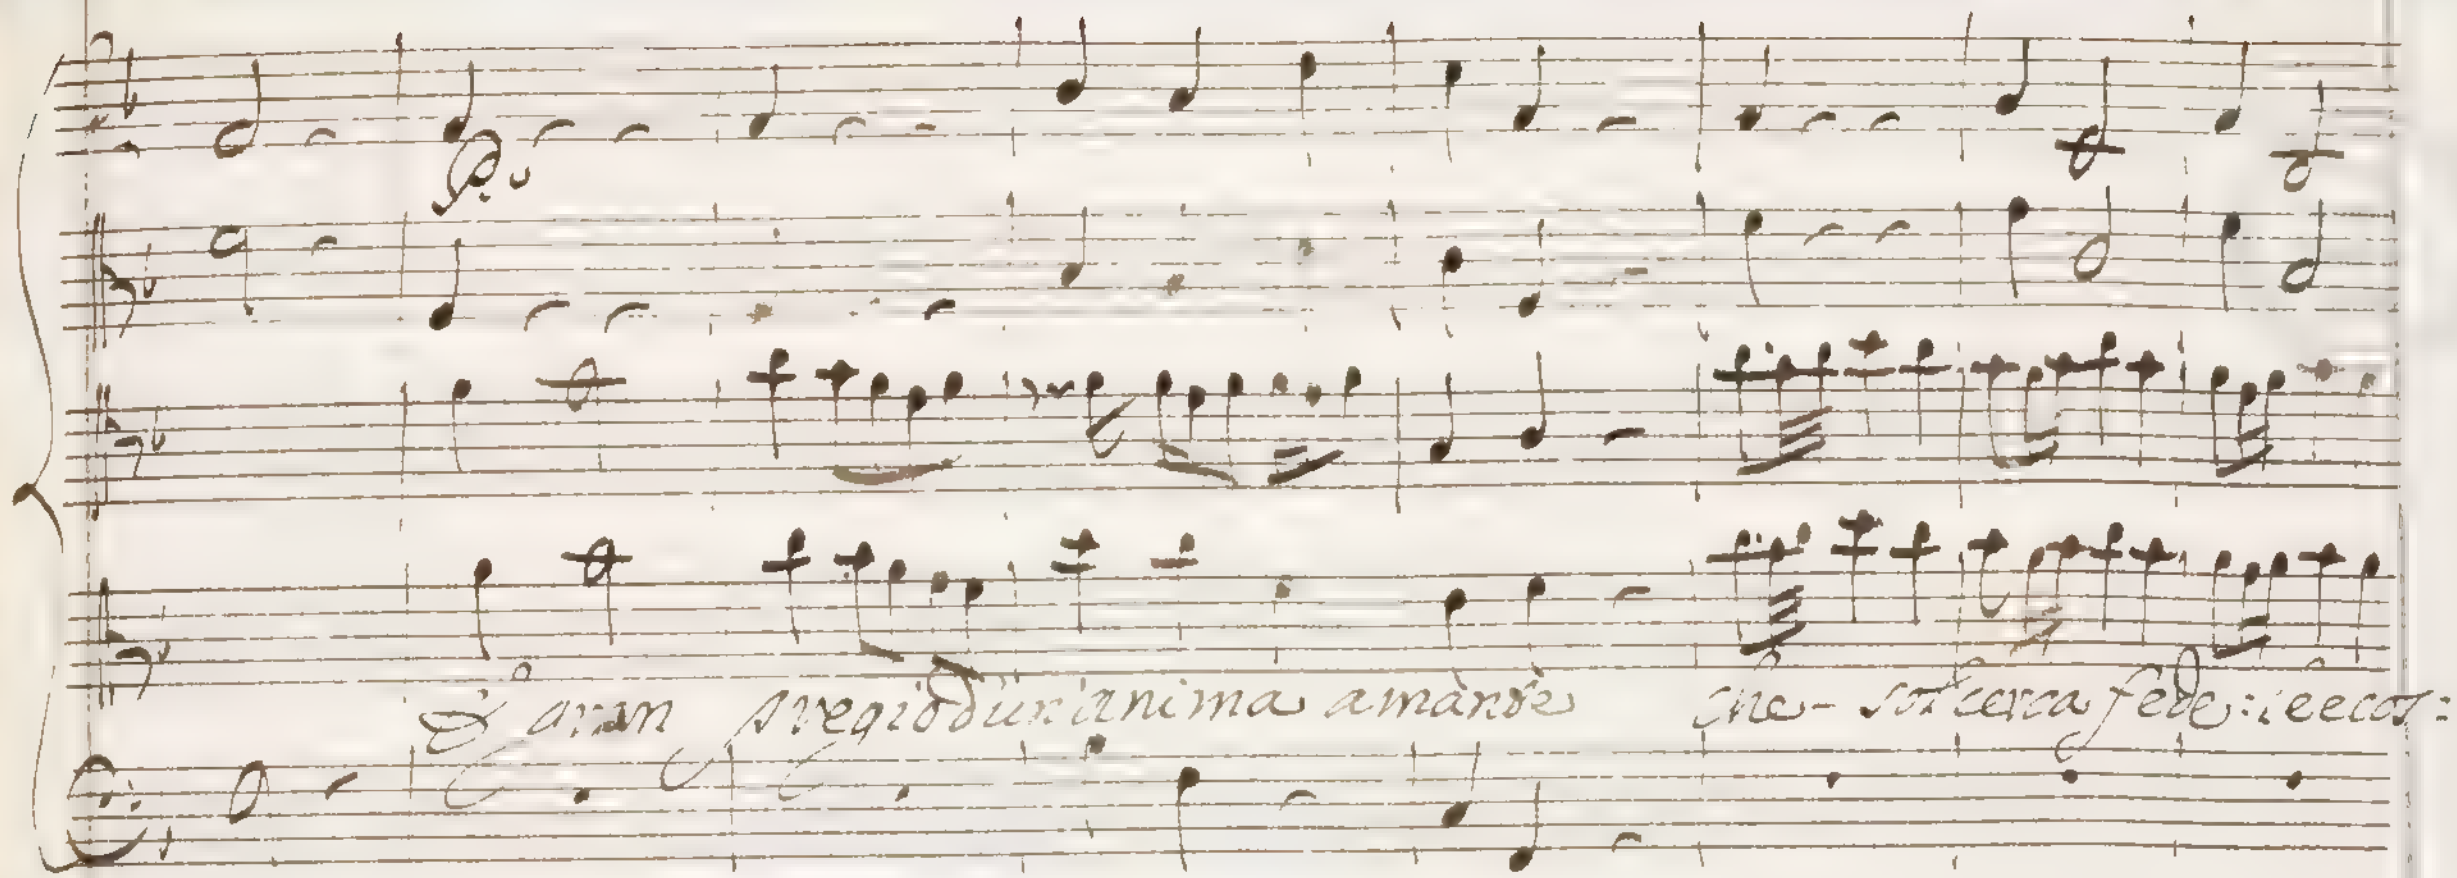 P.º
È gran pregio d'un'anima amante che- sol cerca fede: :e e cos: